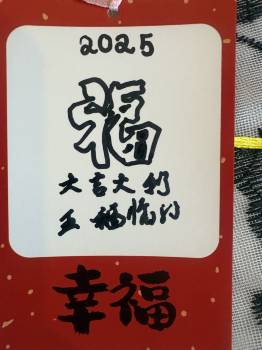 2025
福
大吉大利
五福临门
幸福